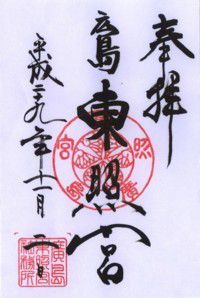 奉拝
廣島東照宮
平成二十九年十一月二日
廣島
東照宮
社務所